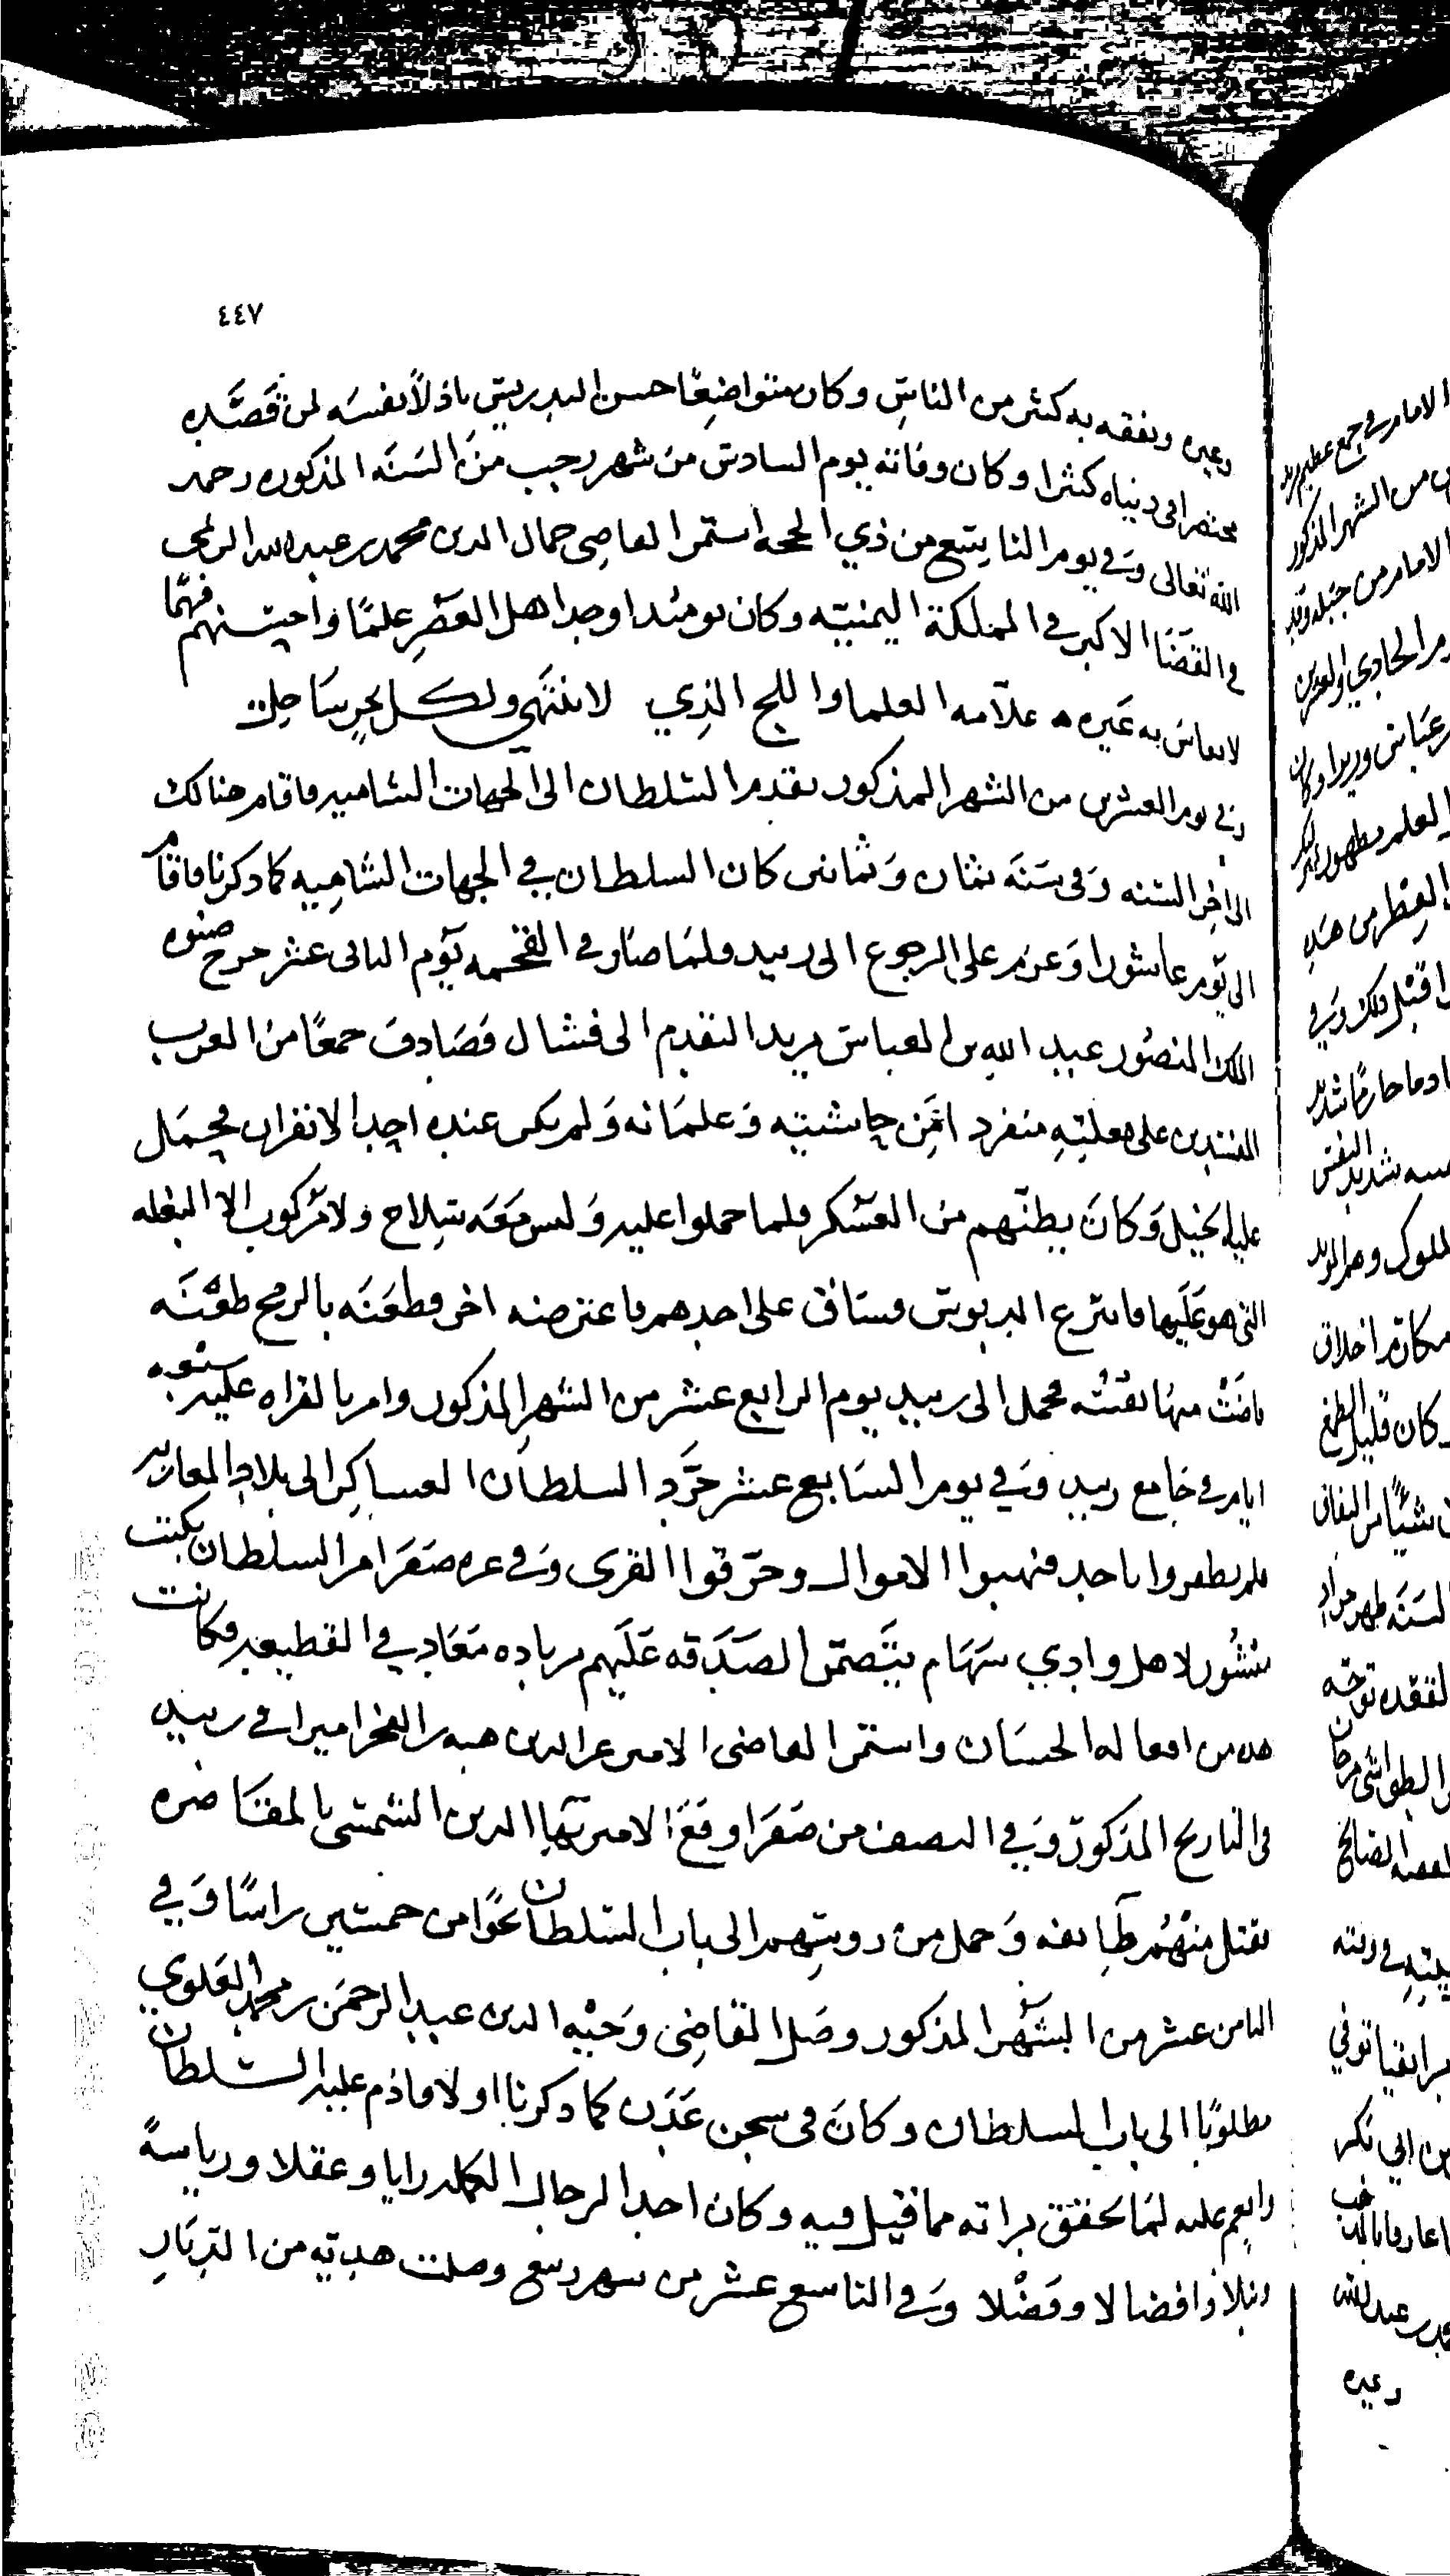 ٤٤٧
وغيره وتفقه به كثير من الناس وكان متواضعًا حسن التدريس باذلًا نفسه لمن قصده
مختصرا في دنياه كثيرا وكان وفاته يوم السادس من شهر رجب من السنة المذكوره رحمه
الله تعالى وفي يوم التاسع من ذي الحجه استمر القاضي جمال الدين محمد بن عبدالله الريمي
في القضا الاكبر في المملكة اليمنيه وكان يومئذ اوحد اهل العصر علمًا واحسنهم فهمًا
لا يقاس به غيره علامه العلما واللج الذي لا ينتهي ولكل بحر ساحل
وفي يوم العشرين من الشهر المذكور تقدم السلطان الى الجهات الشاميه فاقام هنالك
الى اخر السنه وفي سنة ثمان وثمانين كان السلطان في الجهات الشاميه كما ذكرنا فاقام
الى يوم عاشورا وعزم على الرجوع الى زبيد ولما صار في القحمه يوم الثاني عشر خرج صنوه
الملك المنصور عبد الله بن العباس يريد التقدم الى فشال فصادف جمعًا من العرب
المفسدين على بغلته منفردا من حاشيته وغلمانه ولم يكن عنده احد الا نفران فحمل
عليه الخيل وكان يظنهم من العسكر فلما حملوا عليه وليس معه سلاح ولا مركوب الا البغله
التي هو عليها فانتزع الدبوس وساق على احدهم فاعترضه اخر فطعنه بالرمح طعنه
فاضت منها نفسه فحمل الى زبيد يوم الرابع عشر من الشهر المذكور وامر بالقراه عليه سبعه
ايام في جامع زبيد وفي يوم السابع عشر جرد السلطان العساكر الى بلاد المعازبه
فلم يظفروا باحد فنهبوا الاموال وحرقوا القرى وفي غره صفر امر السلطان بكتب
منشور لاهل وادي سهام يتضمن الصدقه عليهم بزياده معاد في القطيعه فكانت
هذه من افعاله الحسان واستمر القاضي الامير عز الدين هبه بن الفخر اميرا في زبيد
في التاريخ المذكور وفي النصف من صفر اوقع الامير بها الدين الشمسي بالمقاصره
فقتل منهم طايفه وحمل من رووسهم الى باب السلطان نحوًا من خمسين راسًا وفي
الثامن عشر من الشهر المذكور وصل القاضي وجيه الدين عبد الرحمن بن محمد العلوي
مطلوبًا الى باب السلطان وكان في سجن عدن كما ذكرنا اولا فاذم عليه السلطان
وانعم عليه لما تحقق براته مما قيل فيه وكان احد الرجال الكمله رايا وعقلا ورياسةً
ونبلا وافضالا وفضلا وفي التاسع عشر من شهر ربيع وصلت هديه من الديار